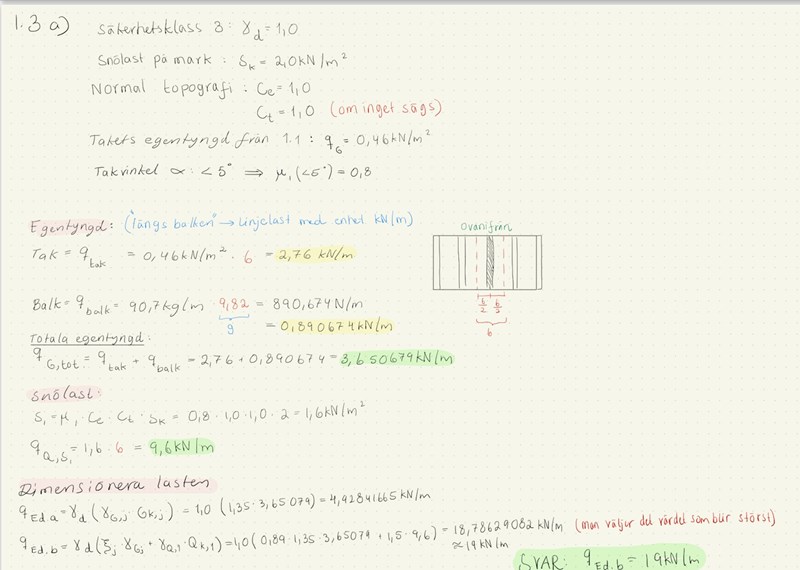 1.3 a) Säkerhetsklass 3: γd = 1,0
Snölast på mark: Sk = 2,0 kN/m²
Normal topografi: Ce = 1,0
Ct = 1,0 (om inget sägs)
Takets egentyngd från 1.1: qG = 0,46 kN/m²
Takvinkel α: < 5° ⇒ μ1 (<5°) = 0,8
Egentyngd: ("längs balken" → Linjelast med enhet kN/m)
ovanifrån
Tak = qtak = 0,46 kN/m² · 6 = 2,76 kN/m
Balk = qbalk = 90,7 kg/m · 9,82 = 890,674 N/m
g = 0,890674 kN/m
b/2 b/2
b
Totala egentyngd:
qG,tot. = qtak + qbalk = 2,76 + 0,890674 = 3,650674 kN/m
Snölast:
S1 = μ1 · Ce · Ct · Sk = 0,8 · 1,0 · 1,0 · 2 = 1,6 kN/m²
qQ,S1 = 1,6 · 6 = 9,6 kN/m
Dimensionera lasten
qEd.a = γd (γG,j · Gk,j) = 1,0 (1,35 · 3,65079) = 4,92841665 kN/m
qEd.b = γd (ξj · γGj + γQ,1 · Qk,1) = 1,0 (0,89 · 1,35 · 3,65079 + 1,5 · 9,6) = 18,78629082 kN/m (man väljer del värdel som blir störst)
≈ 19 kN/m
SVAR: qEd.b = 19 kN/m